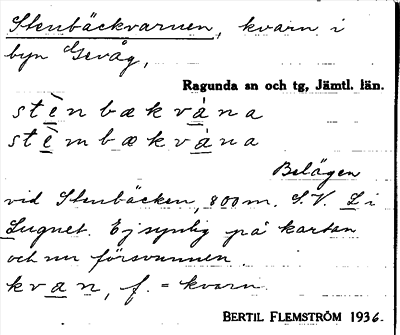 Stenbäckvarnen, kvarn i
byn Gevåg,
Ragunda sn och tg, Jämtl. län.
stè̲nbækvà̲na
stè̲mbækvà̲na
Belägen
vid Stenbäcken, 800 m. S.V. L i
Lugnet. Ej synlig på kartan
och nu försvunnen.
kva̲n, f. = kvarn.
BERTIL FLEMSTRÖM 1936.